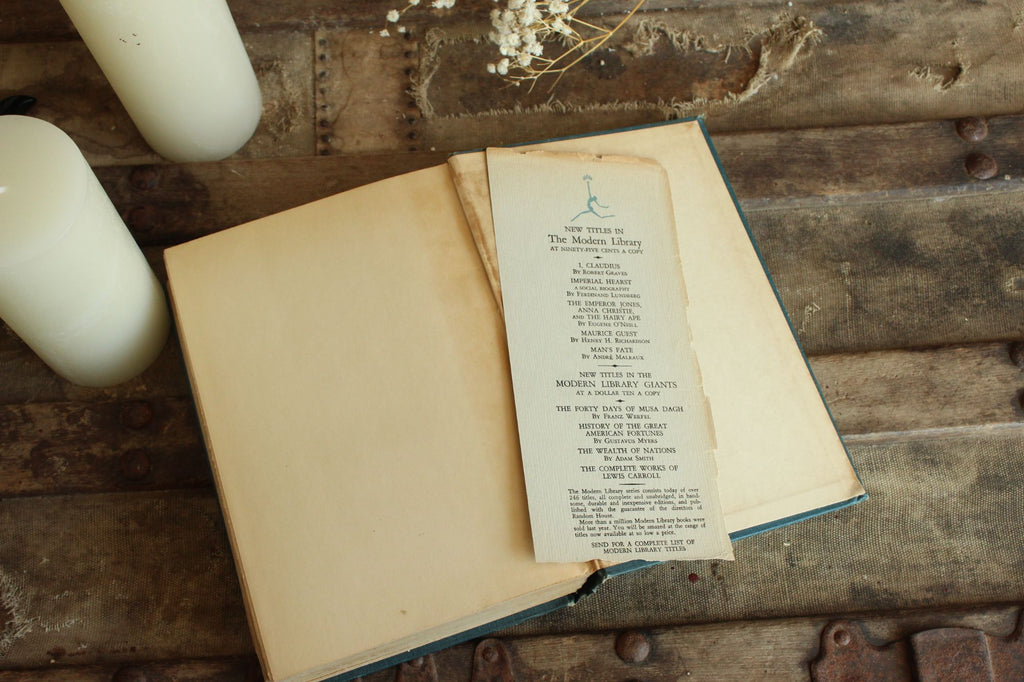 NEW TITLES IN
The Modern Library
AT NINETY-FIVE CENTS A COPY
I, CLAUDIUS
BY ROBERT GRAVES
IMPERIAL HEARST
A SOCIAL BIOGRAPHY
BY FERDINAND LUNDBERG
THE EMPEROR JONES,
ANNA CHRISTIE,
AND THE HAIRY APE
BY EUGENE O'NEILL
MAURICE GUEST
BY HENRY H. RICHARDSON
MAN'S FATE
BY ANDRÉ MALRAUX
NEW TITLES IN THE
MODERN LIBRARY GIANTS
AT A DOLLAR TEN A COPY
THE FORTY DAYS OF MUSA DAGH
BY FRANZ WERFEL
HISTORY OF THE GREAT
AMERICAN FORTUNES
BY GUSTAVUS MYERS
THE WEALTH OF NATIONS
BY ADAM SMITH
THE COMPLETE WORKS OF
LEWIS CARROLL
The Modern Library series consists today of over
246 titles, all complete and unabridged, in hand-
some, durable and inexpensive editions, and pub-
lished with the guarantee of the directors of
Random House.
More than a million Modern Library books were
sold last year. You will be amazed at the range of
titles now available at so low a price.
SEND FOR A COMPLETE LIST OF
MODERN LIBRARY TITLES